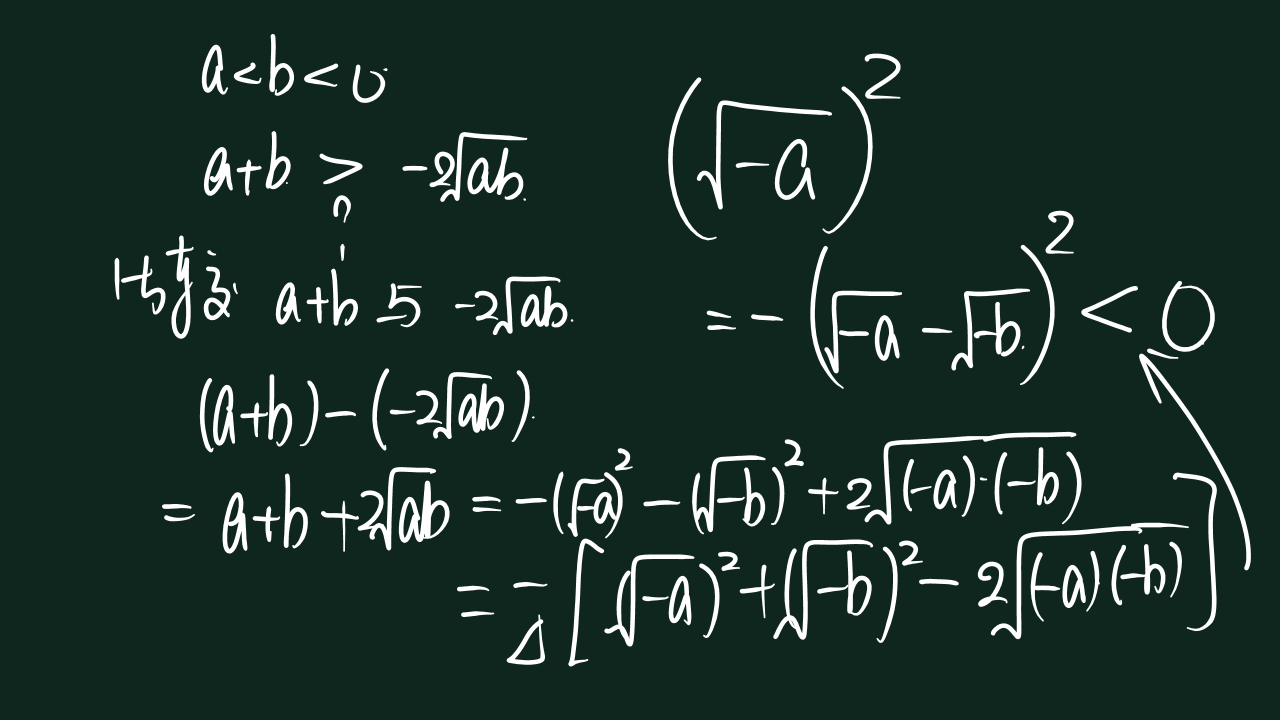 a<b<0
a+b > -2√ab
比较 a+b 与 -2√ab
(a+b)-(-2√ab)
= a+b+2√ab = -(√-a)² - (√-b)² + 2√(-a)·(-b)
= -[(√-a)² + (√-b)² - 2√(-a)(-b)]
(√-a)²
= -(√-a - √-b)² < 0